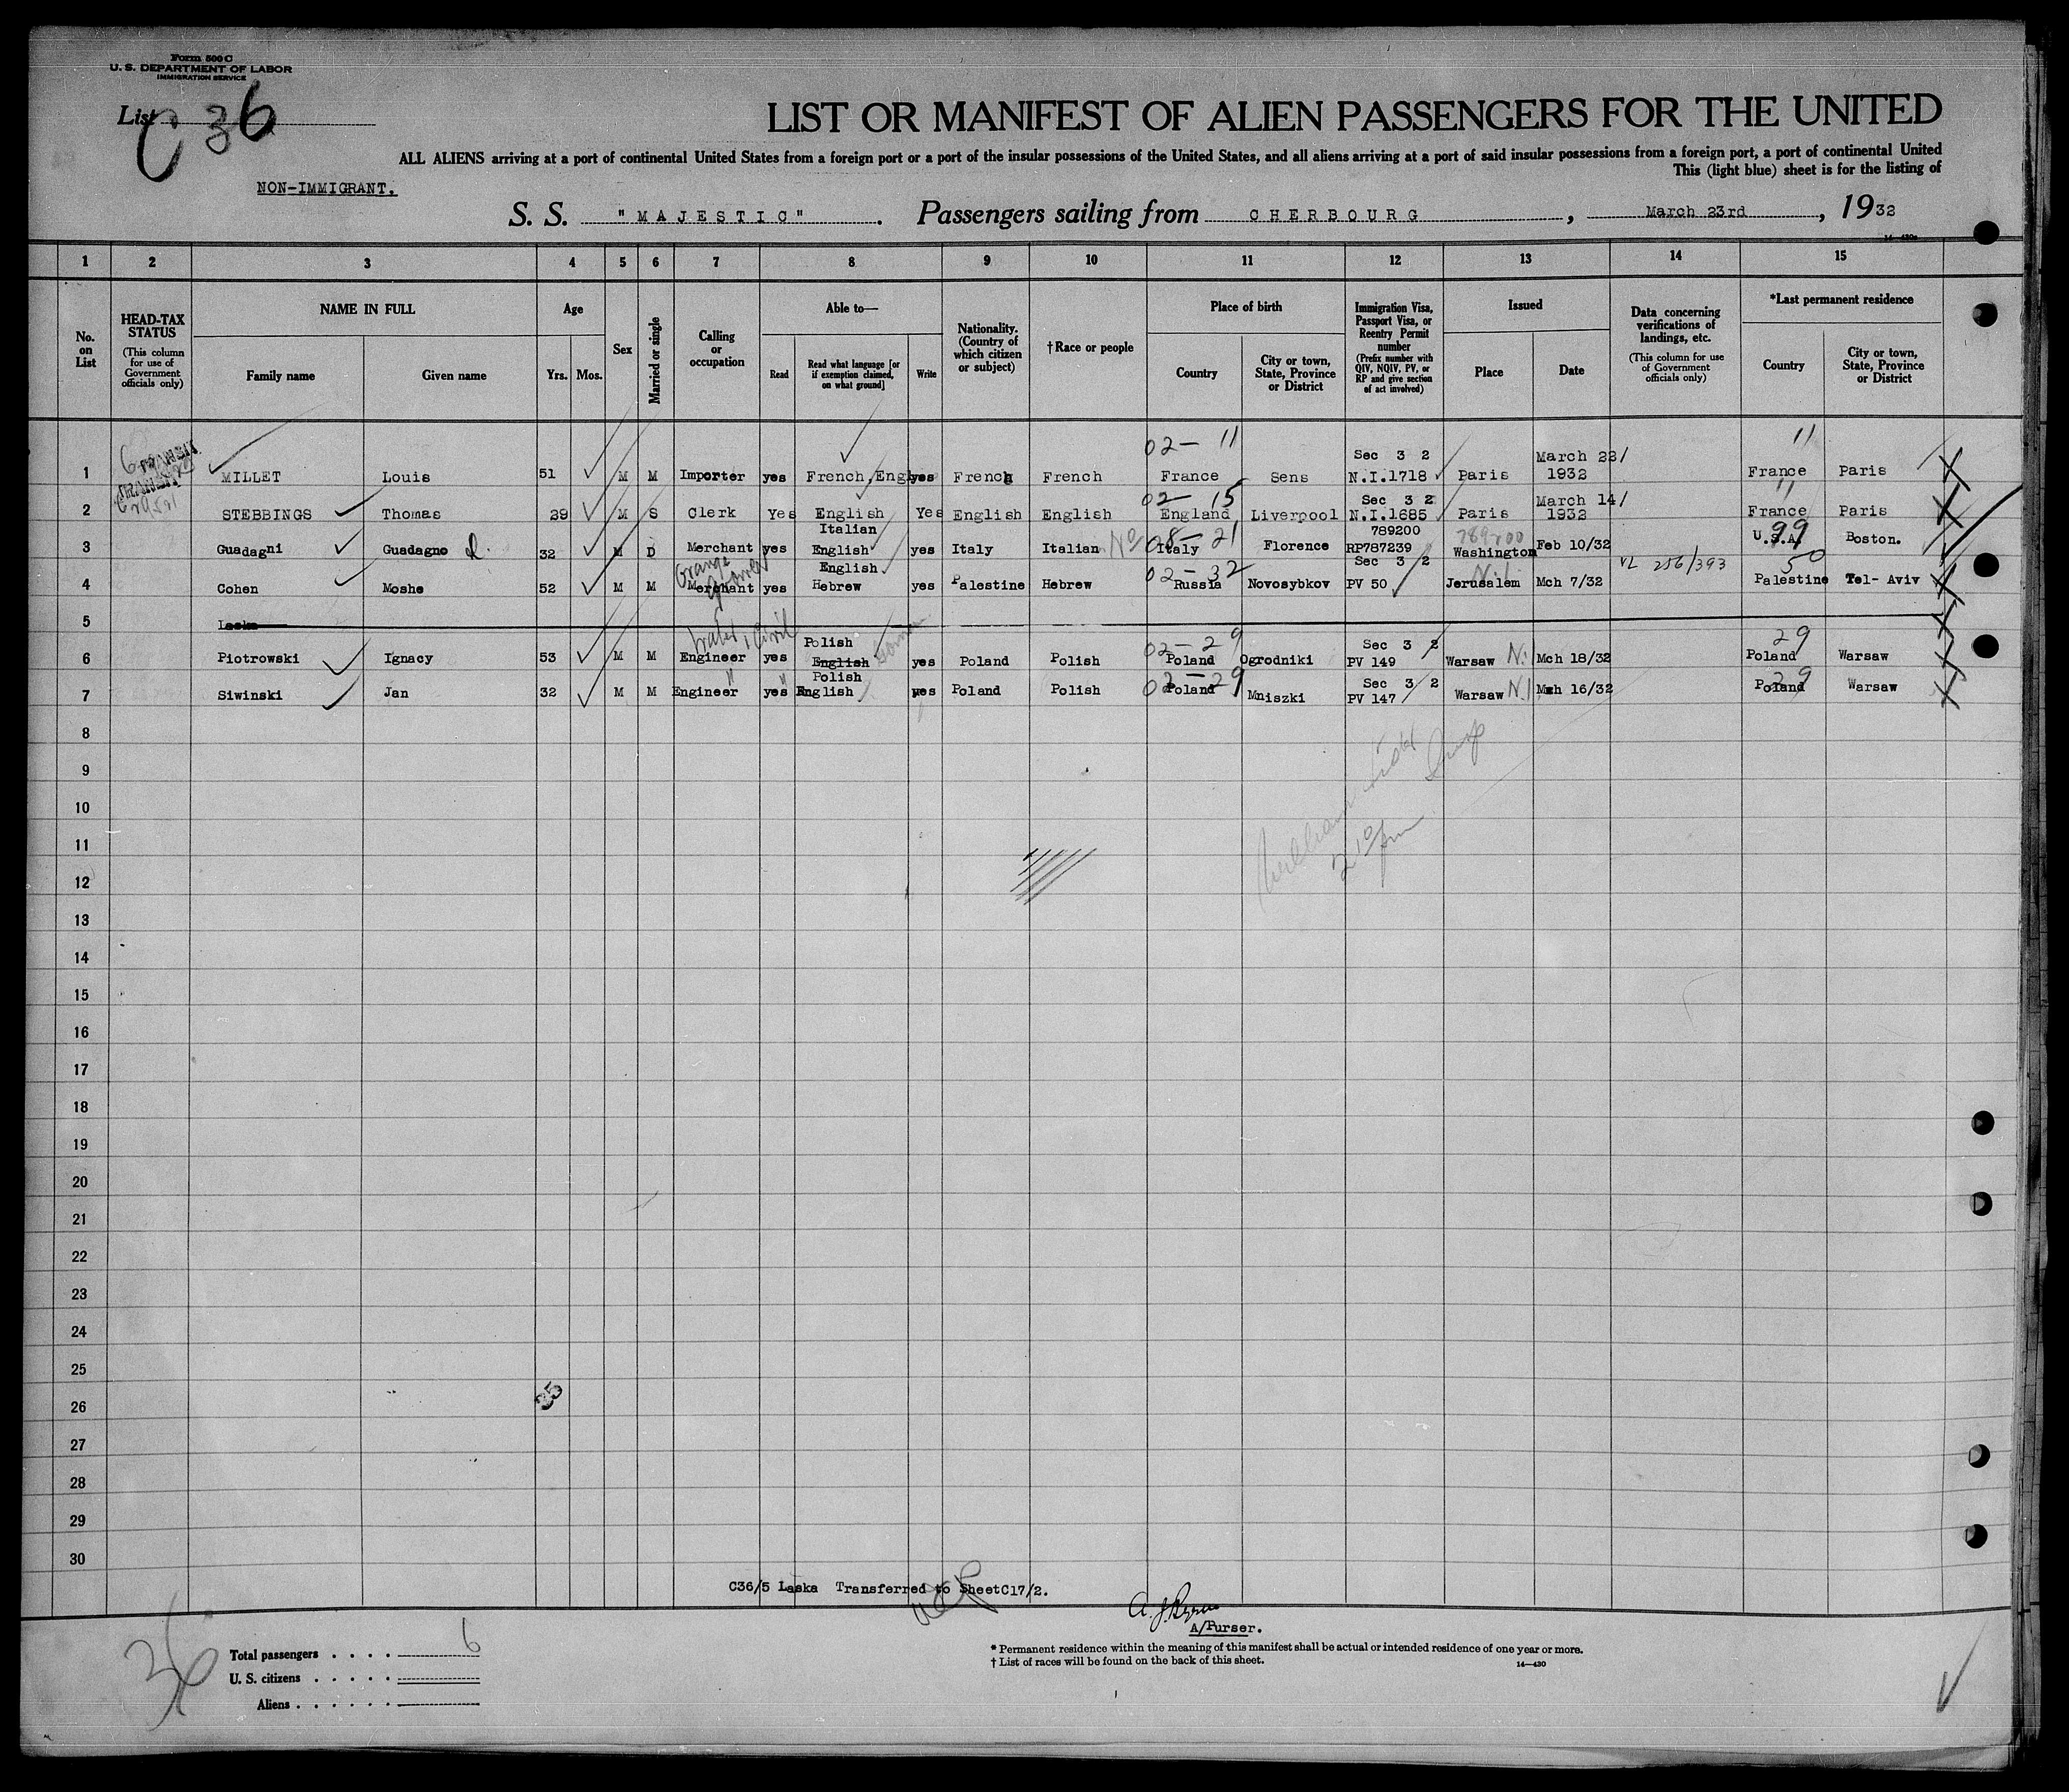 Form 500 C
U. S. DEPARTMENT OF LABOR
IMMIGRATION SERVICE
List C 36
LIST OR MANIFEST OF ALIEN PASSENGERS FOR THE UNITED
ALL ALIENS arriving at a port of continental United States from a foreign port or a port of the insular possessions of the United States, and all aliens arriving at a port of said insular possessions from a foreign port, a port of continental United
This (light blue) sheet is for the listing of
NON-IMMIGRANT.
S. S. "MAJESTIC". Passengers sailing from CHERBOURG, March 23rd, 1932
14-430a
1 2 3 4 5 6 7 8 9 10 11 12 13 14 15
No. on List
HEAD-TAX STATUS
(This column for use of Government officials only)
NAME IN FULL
Family name Given name
Age
Yrs. Mos.
Sex
Married or single
Calling or occupation
Able to—
Read
Read what language [or if exemption claimed, on what ground]
Write
Nationality. (Country of which citizen or subject)
†Race or people
Place of birth
Country
City or town, State, Province or District
Immigration Visa, Passport Visa, or Reentry Permit number
(Prefix number with QIV, NQIV, PV, or RP and give section of act involved)
Issued
Place Date
Data concerning verifications of landings, etc.
(This column for use of Government officials only)
*Last permanent residence
Country
City or town, State, Province or District
02- 11 11
TRANSIT
Sec 3 2 March 22/
1 MILLET Louis 51 M M Importer yes French,Eng yes French French France Sens N.I.1718 Paris 1932 France Paris
TRANSIT
02- 15 Sec 3 2 March 14/ 11
2 STEBBINGS Thomas 29 M S Clerk Yes English Yes English English England Liverpool N.I.1685 Paris 1932 France Paris
Italian 08-21 789200 789200 99
3 Guadagni Guadagno d. 32 M D Merchant yes English yes Italy Italian No Italy Florence RP787239 Washington Feb 10/32 U.S.A. Boston.
Orange Grower English 02-32 Sec 3 2 N.I. VL 256/393 50
4 Cohen Moshe 52 M M Merchant yes Hebrew yes Palestine Hebrew Russia Novosybkov PV 50 Jerusalem Mch 7/32 Palestine Tel- Aviv
5 Laska
Civil Polish 02-29 Sec 3 2 29
6 Piotrowski Ignacy 53 M M Engineer yes English yes Poland Polish Poland Ogrodniki PV 149 Warsaw N. Mch 18/32 Poland Warsaw
" " Polish 02-29 Sec 3 2 29
7 Siwinski Jan 32 M M Engineer yes English yes Poland Polish Poland Mniszki PV 147 Warsaw N.I Mch 16/32 Poland Warsaw
8
9
10
11
12
13
14
15
16
17
18
19
20
21
22
23
24
25
26
35
27
28
29
30
C36/5 Laska Transferred to SheetC17/2.
A/Purser.
36
Total passengers . . . . 6
U. S. citizens . . . . .
Aliens . . . . . .
* Permanent residence within the meaning of this manifest shall be actual or intended residence of one year or more.
† List of races will be found on the back of this sheet.
14-430